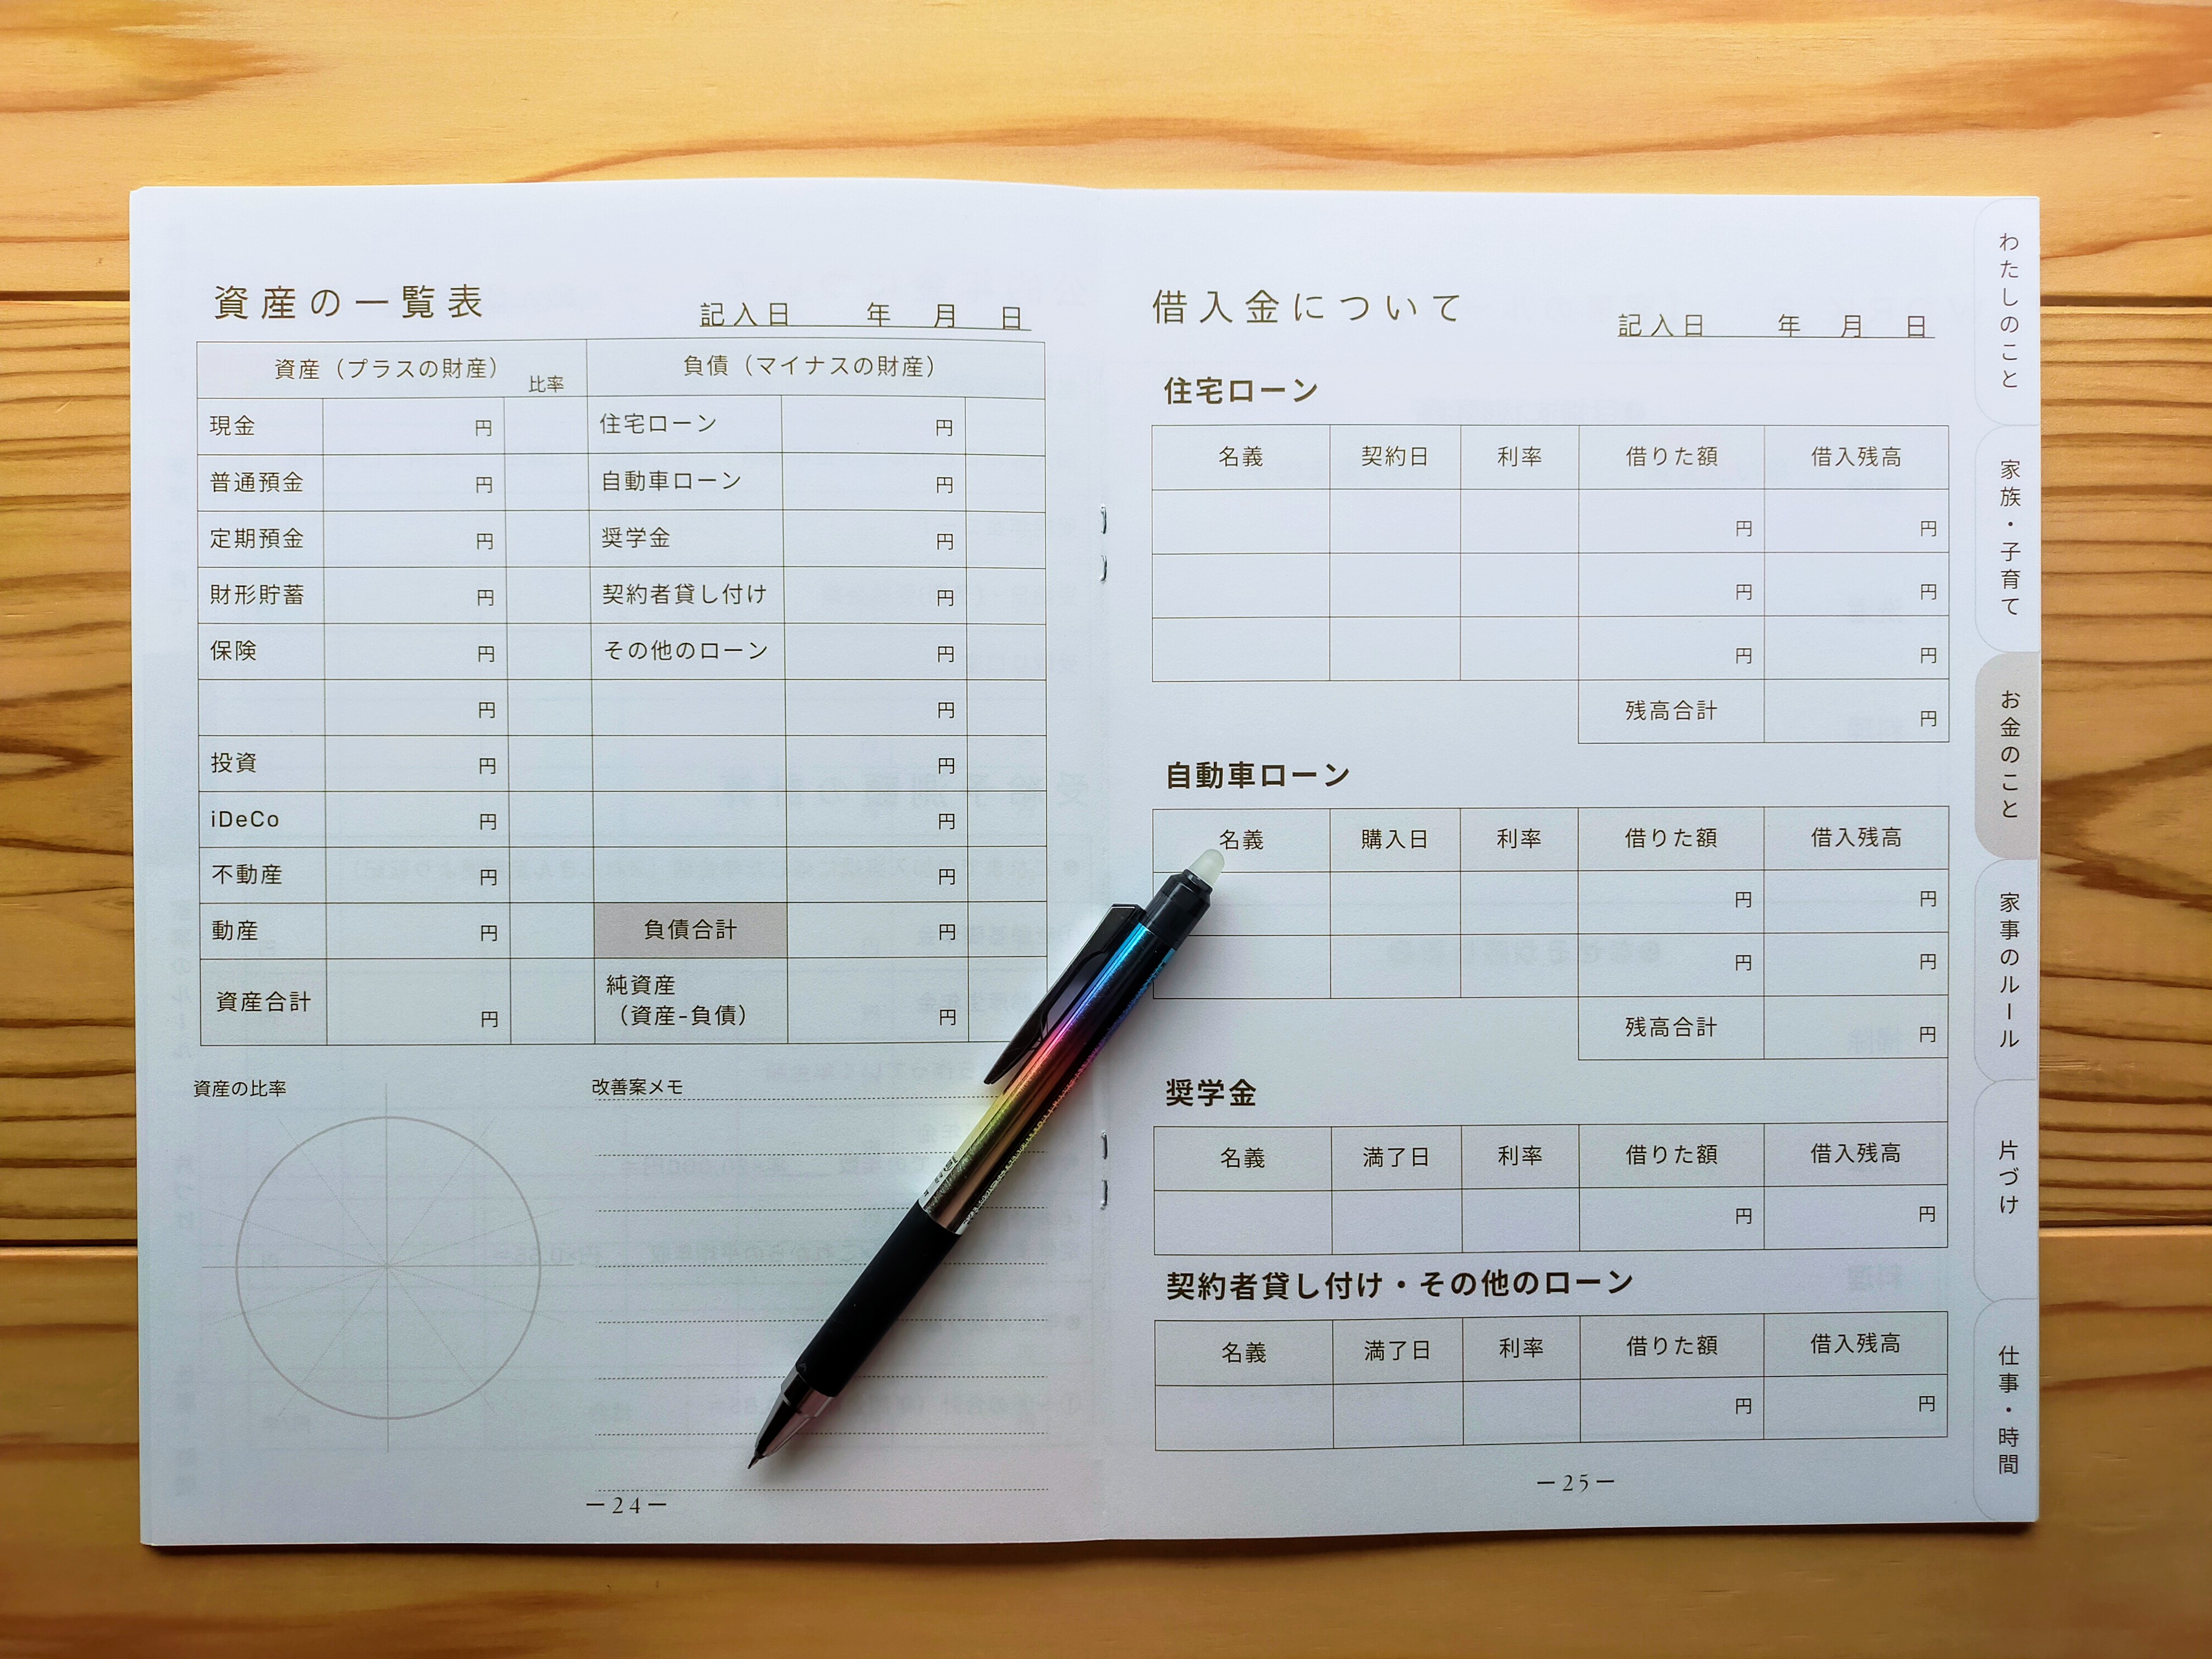 資産の一覧表
記入日 年 月 日
資産（プラスの財産） 比率 負債（マイナスの財産）
現金 円 住宅ローン 円
普通預金 円 自動車ローン 円
定期預金 円 奨学金 円
財形貯蓄 円 契約者貸し付け 円
保険 円 その他のローン 円
円 円
投資 円 円
iDeCo 円 円
不動産 円 円
動産 円 負債合計 円
資産合計 円 純資産
（資産-負債） 円
資産の比率
改善案メモ
－24－
借入金について
記入日 年 月 日
住宅ローン
名義 契約日 利率 借りた額 借入残高
円 円
円 円
円 円
残高合計 円
自動車ローン
名義 購入日 利率 借りた額 借入残高
円 円
円 円
残高合計 円
奨学金
名義 満了日 利率 借りた額 借入残高
円 円
契約者貸し付け・その他のローン
名義 満了日 利率 借りた額 借入残高
円 円
－25－
わたしのこと
家族・子育て
お金のこと
家事のルール
片づけ
仕事・時間